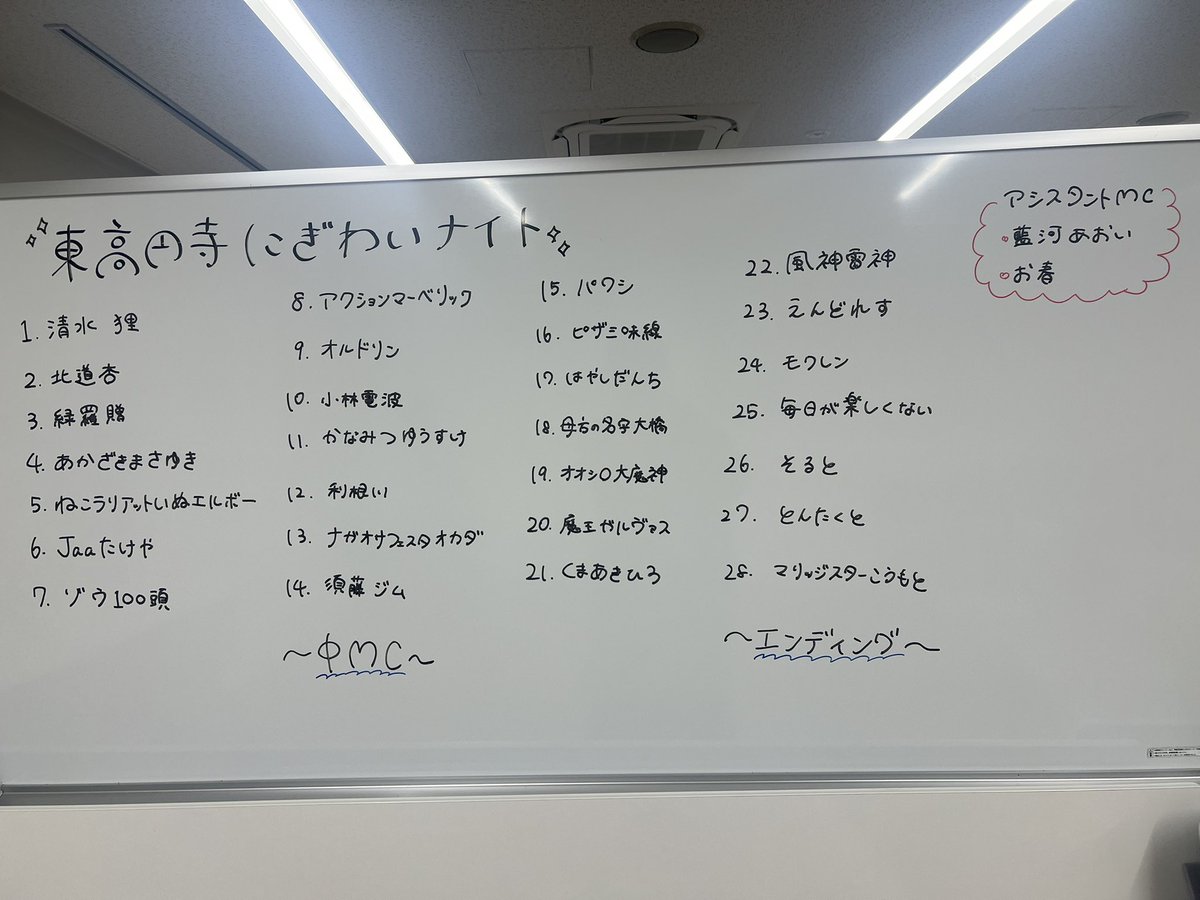 東高円寺にぎわいナイト
1. 清水 狸
2. 北道杏
3. 緑羅贈
4. あかざきまさゆき
5. ねこラリアットいぬエルボー
6. Jaaたけや
7. ゾウ100頭
8. アクションマーベリック
9. オルドリン
10. 小林電波
11. かなみつゆうすけ
12. 利根川
13. ナガオサフェスタオカダ
14. 須藤ジム
〜中MC〜
15. パワシ
16. ピザ三味線
17. はやしだんち
18. 母方の名字大橋
19. オオシロ大魔神
20. 魔王ガルヴァス
21. くまあきひろ
22. 風神雷神
23. えんどれす
24. モクレン
25. 毎日が楽しくない
26. そると
27. とんたくと
28. マリッジスターこうもと
〜エンディング〜
アシスタントMC
・藍河あおい
・お春